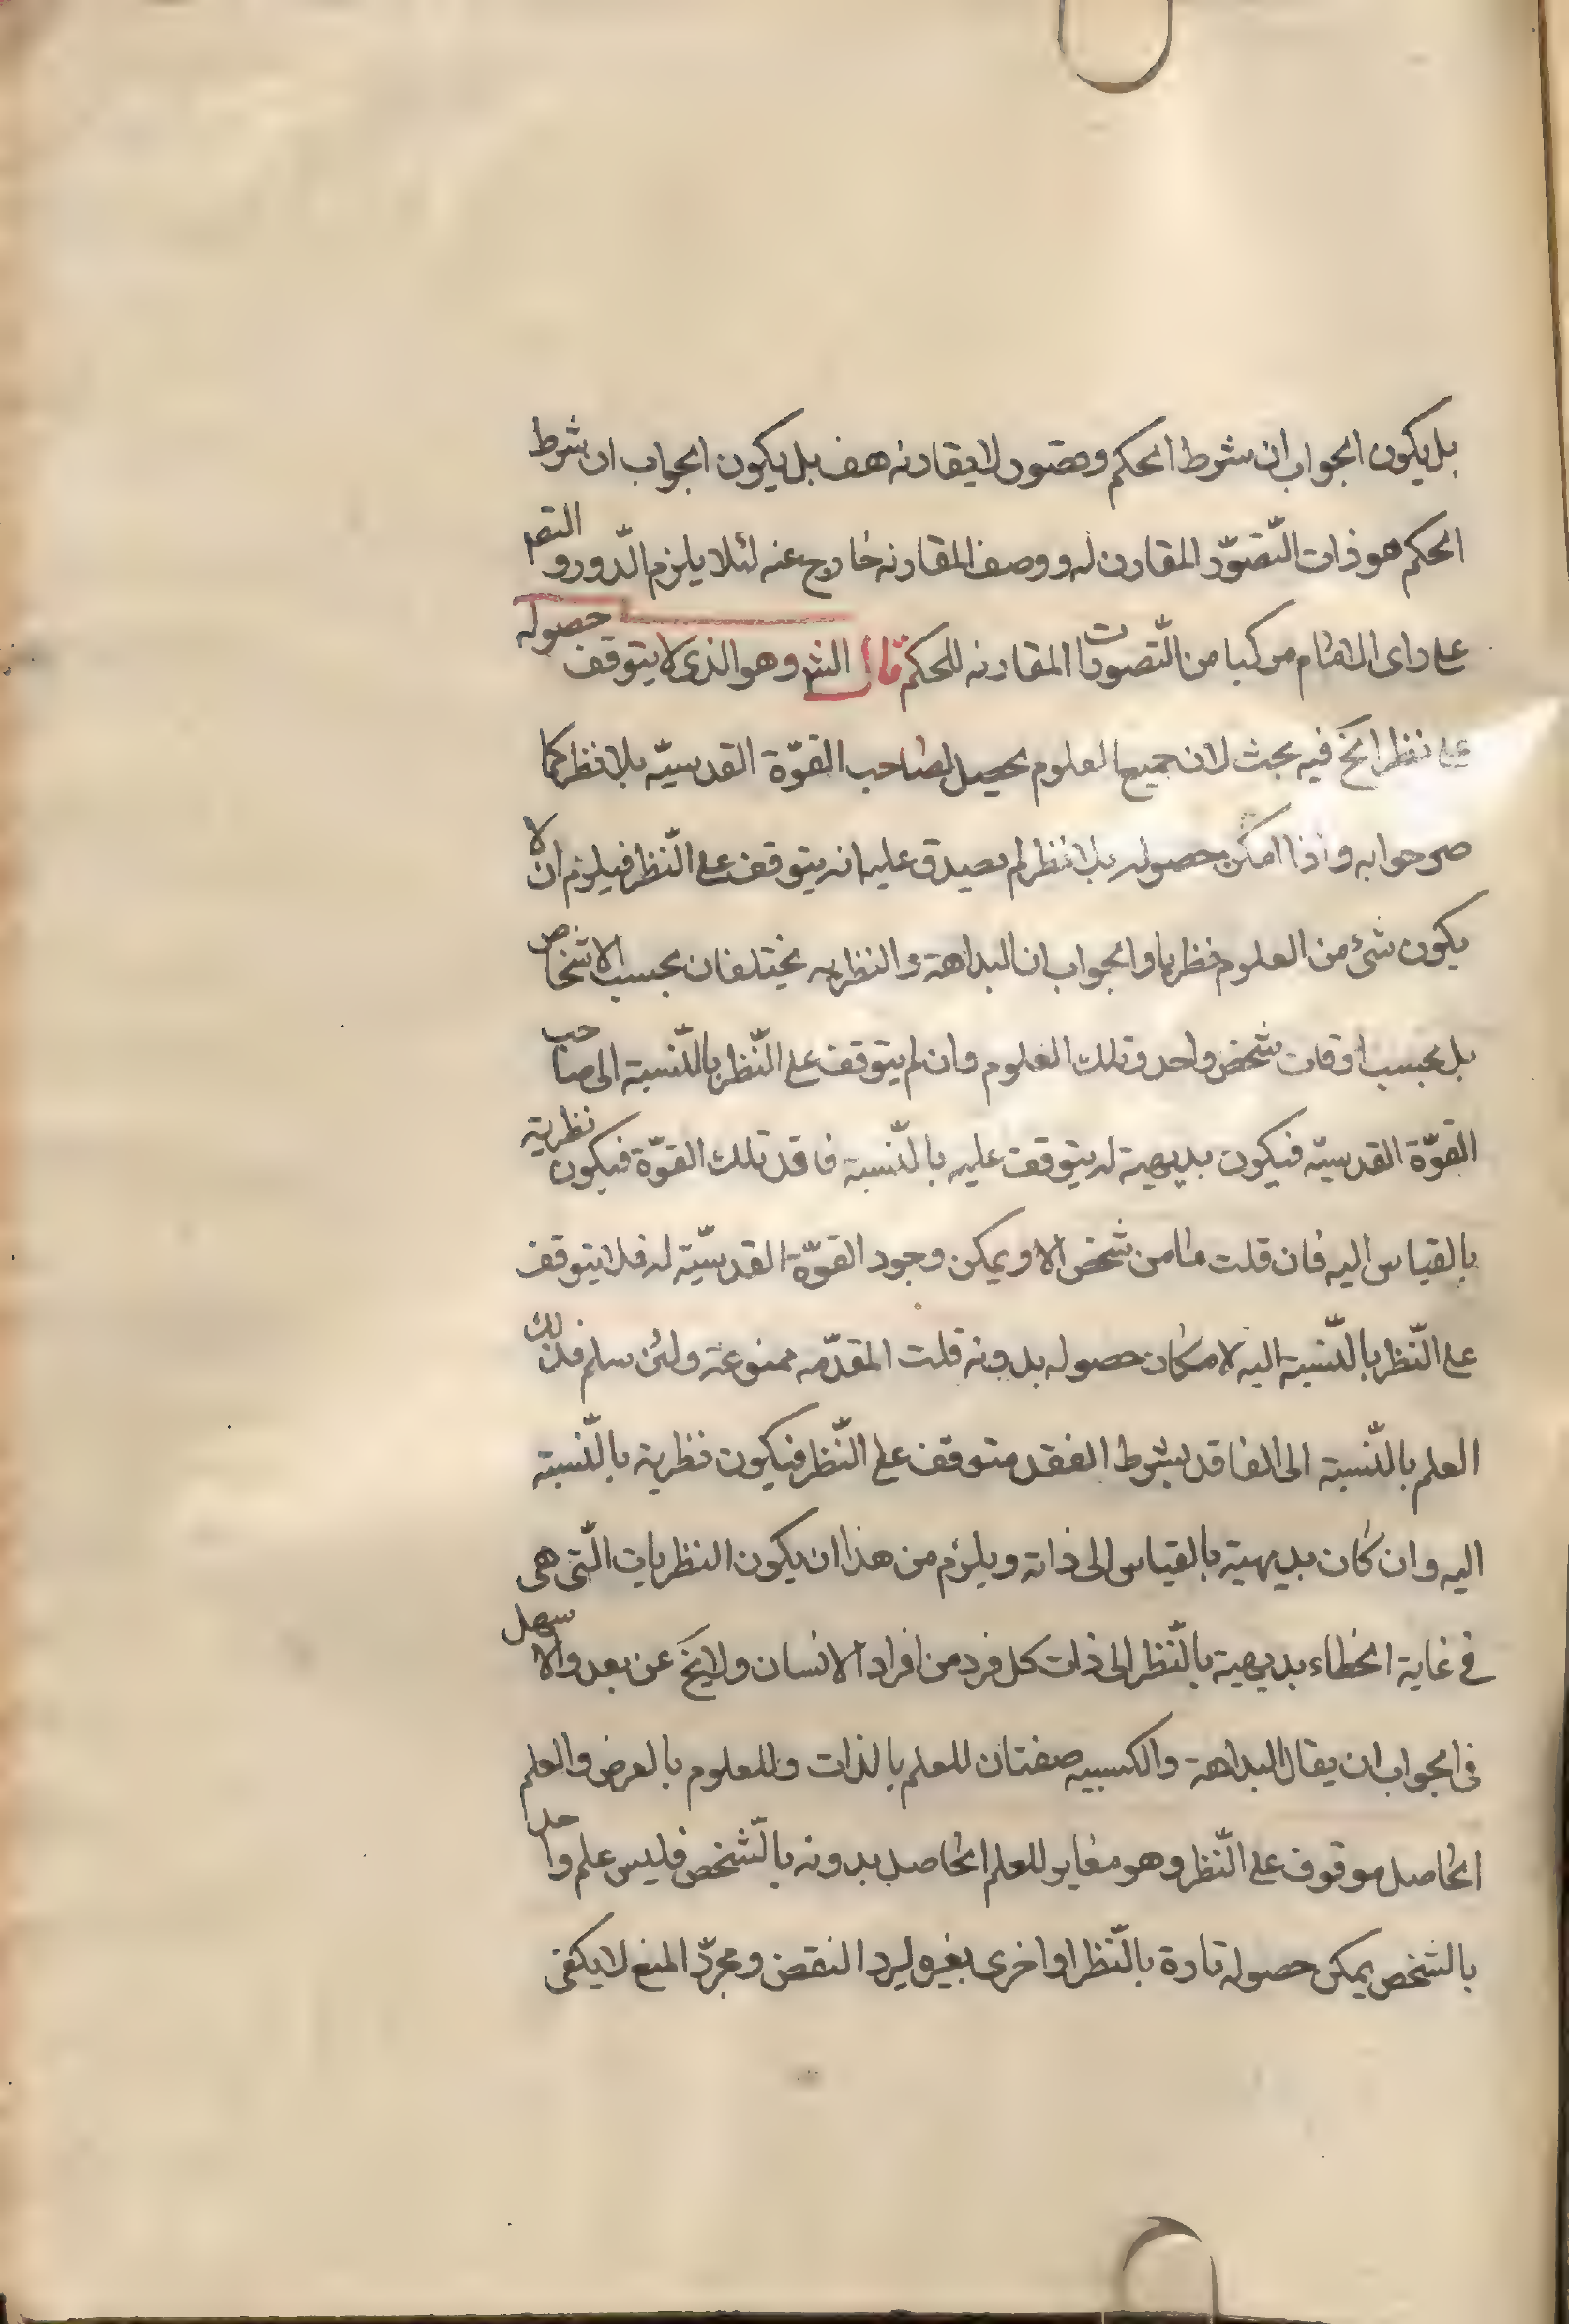 بل يكون الجواب ان شرط الحكم وهو تصور لا يقارنه هف بل يكون الجواب ان شرط
الحكم هو ذات التّصوّر المقارن له و وصف المقارنه خارج عنه لئلا يلزم الّدور و التصو
على راى الامام مركبا من التّصورات المقارنه للحكم قال الش وهو الذى لا يتوقف حصوله
على نظر الخ فيه بحث لان جميع العلوم يحصل لصاحب القوّة القدسيّه بلا نظر كما
صرحوا به و اذا امكن حصوله بلا نظر لم يصدق عليه انه يتوقف على النّظر فيلزم ان لا
يكون شئ من العلوم نظريا و الجواب ان البداهة و النظريه يختلفان بحسب الاشخاص
بل بحسب اوقات شخص واحد و تلك العلوم وان لم يتوقف على النّظر بالنّسبة الى صاحب
القوّة القدسيّه فيكون بديهية له يتوقف عليه بالنّسبة فاقد تلك القوّة فيكون نظرية
بالقياس اليه فان قلت ما من شخص الا و يمكن وجود القوّة القدسيّة له فلا يتوقف
على النّظر بالنّسبة اليه لامكان حصوله بدونه قلت المقدّمه ممنوعة ولئن سلم فذلك
العلم بالنّسبة الى الفاقد بشرط الفقد متوقف على النّظر فيكون نظرية بالنّسبة
اليه وان كان بديهية بالقياس الى ذاته و يلزم من هذا ان يكون النظريات الّتى هى
فى غاية الخطاء بديهية بالنّظر الى ذات كل فرد من افراد الانسان ولا يخ عن بعد والاسهل
فى الجواب ان يقال البداهة والكسبيه صفتان للعلم بالذات وللمعلوم بالعرض والعلم
الحاصل موقوف على النّظر وهو مغاير للعلم الحاصل بدونه بالّشخص فليس علم واحد
بالشخص يمكن حصوله تارة بالنّظر و اخرى بغيره ليرد النقض و مجرّد المنع لا يكفى